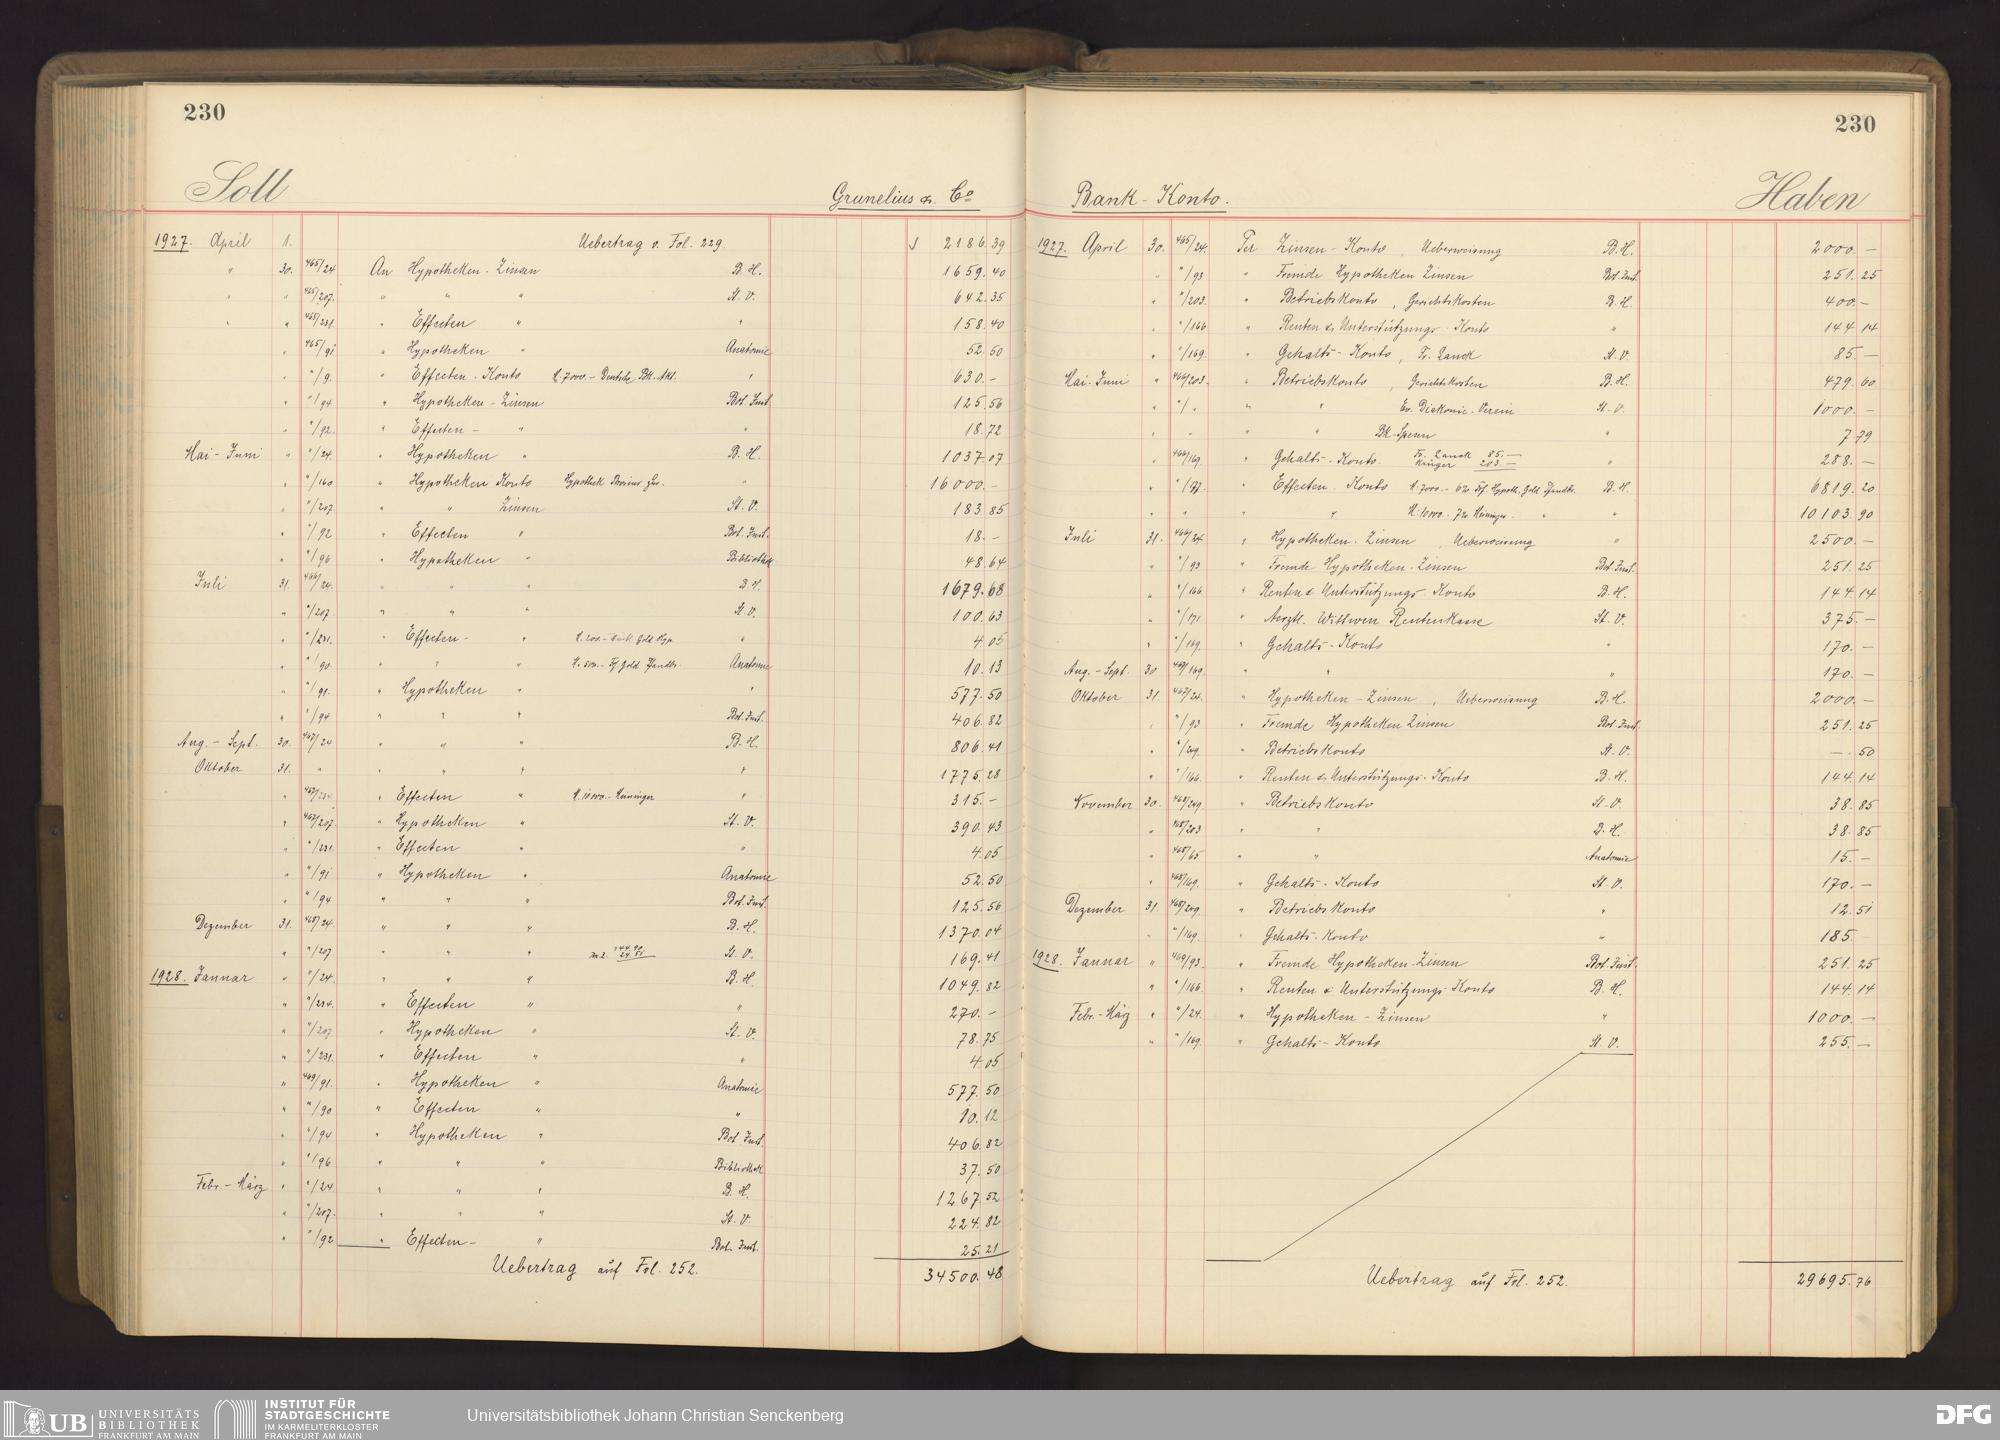 230
Soll
Grunelius & Co
1927. April 1. Uebertrag v. Fol. 229. 2186.39
" 30. 465/24. An Hypotheken-Zinsen B.H. 1659.40
" " 465/207. " " " St.V. 642.35
" " 465/231. " Effecten " " 158.40
" 465/91 " Hypotheken " Anatomie 52.50
" "/9. " Effecten-Konto M.7000.- Deutsche Bk. Akt. " 630.-
" "/94 " Hypotheken-Zinsen Bot.Inst. 125.56
" "/92. " Effecten- " " 18.72
Mai-Juni " "/24. " Hypotheken " B.H. 1037.07
" "/160 " Hypotheken Konto Hypothek " 16000.-
" "/207. " " Zinsen St.V. 183.85
" "/92 " Effecten " Bot.Inst. 18.-
" "/96 " Hypotheken " Bibliothek 48.64
Juli 31. 466/24. " " " B.H. 1679.68
" "/207. " " " St.V. 100.63
" "/231. " Effecten- " M.200.- Gold Hyp. " 4.05
" "/90. " " " M.500.- Gold Pfandbr. Anatomie 10.13
" "/91. " Hypotheken " " 577.50
" "/94 " " " Bot.Inst. 406.82
Aug.-Sept. 30. 467/24 " " " B.H. 806.41
Oktober 31. " " " " " 1775.28
" 467/234. " Effecten " M.10000.- Meininger " 315.-
" 467/207. " Hypotheken " St.V. 390.43
" "/231. " Effecten " " 4.05
" "/91 " Hypotheken " Anatomie 52.50
" "/94 " " " Bot.Inst. 125.56
Dezember 31. 468/24. " " " B.H. 1370.04
" "/207 " " " St.V. 169.41
1928. Januar " "/24. " " " B.H. 1049.82
" "/234. " Effecten " " 270.-
" "/207 " Hypotheken " St.V. 78.75
" "/231. " Effecten " " 4.05
" 469/91. " Hypotheken " Anatomie 577.50
" "/90 " Effecten " " 10.12
" "/94 " Hypotheken " Bot.Inst. 406.82
" "/96 " " " Bibliothek 37.50
Febr.-März " "/24. " " " B.H. 1267.52
" "/207. " " " St.V. 224.82
" "/92 " Effecten- " Bot.Inst. 25.21
Uebertrag auf Fol. 252. 34500.48
230
Bank-Konto.
Haben
1927. April 30. 465/24. Per Zinsen-Konto, Ueberweisung B.H. 2000.-
" "/93 " Fremde Hypotheken Zinsen Bot.Inst. 251.25
" "/203. " Betriebskonto, Gerichtskosten B.H. 400.-
" "/166 " Renten & Unterstützungs-Konto " 144.14
" "/169. " Gehalts-Konto, Fr. Zanck St.V. 85.-
Mai-Juni " 466/203. " Betriebskonto, Gerichtskosten B.H. 479.60
" "/" " " Ev. Diakonie-Verein St.V. 1000.-
" " " " Bk-Spesen " 7.79
" 466/169. " Gehalts-Konto. Fr. Zanck 85.- Krüger 203.- " 288.-
" "/97. " Effecten-Konto M.7000.- 6% Frf. Hypoth. Gold Pfandbr. B.H. 6819.20
" " " " M.10000.- 7% Meininger " " 10103.90
Juli 31. 466/24. " Hypotheken-Zinsen, Ueberweisung " 2500.-
" "/93 " Fremde Hypotheken-Zinsen Bot.Inst. 251.25
" "/166 " Renten & Unterstützungs Konto B.H. 144.14
" "/171 " Aerztl. Wittwen Rentenkasse St.V. 375.-
" "/169. " Gehalts-Konto " 170.-
Aug.-Sept. 30 467/169. " " " 170.-
Oktober 31. 467/24. " Hypotheken-Zinsen, Ueberweisung B.H. 2000.-
" "/93 " Fremde Hypotheken Zinsen Bot.Inst. 251.25
" "/209. " Betriebskonto St.V. -.50
" "/166. " Renten & Unterstützungs-Konto B.H. 144.14
November 30. 468/209. " Betriebskonto St.V. 38.85
" 468/203 " " B.H. 38.85
" 468/65 " " Anatomie 15.-
" 468/169. " Gehalts-Konto St.V. 170.-
Dezember 31. 468/209. " Betriebskonto " 12.51
" "/169. " Gehalts-Konto " 185.-
1928. Januar " 469/93. " Fremde Hypotheken-Zinsen Bot.Inst. 251.25
" "/166. " Renten & Unterstützungs Konto B.H. 144.14
Febr.-März " "/24. " Hypotheken-Zinsen " 1000.-
" "/169. " Gehalts-Konto St.V. 255.-
Uebertrag auf Fol. 252. 29695.76
UB UNIVERSITÄTS BIBLIOTHEK FRANKFURT AM MAIN
INSTITUT FÜR STADTGESCHICHTE IM KARMELITERKLOSTER FRANKFURT AM MAIN
Universitätsbibliothek Johann Christian Senckenberg
DFG